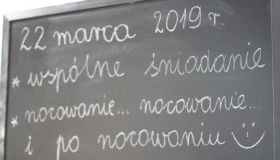 22 marca 2019 r.
* wspólne śniadanie
* nocowanie... nocowanie...
i po nocowaniu